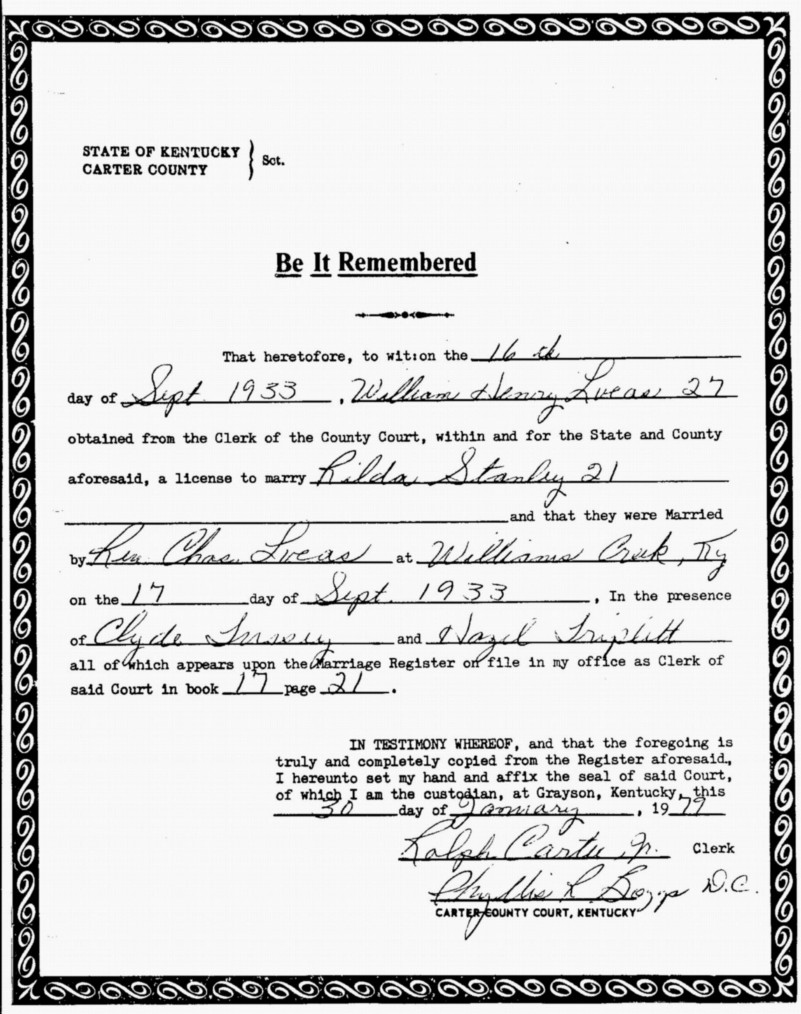 STATE OF KENTUCKY
CARTER COUNTY } Sct.
Be It Remembered
That heretofore, to wit:on the 16 th
day of Sept. 1933, William Henry Lucas 27
obtained from the Clerk of the County Court, within and for the State and County
aforesaid, a license to marry Rilda Stanley 21
and that they were Married
by Rev. Chas. Lucas at Williams Creek, Ky
on the 17 day of Sept. 1933, In the presence
of Clyde and Hazel Triplett
all of which appears upon the Marriage Register on file in my office as Clerk of
said Court in book 17 page 21.
IN TESTIMONY WHEREOF, and that the foregoing is
truly and completely copied from the Register aforesaid.,
I hereunto set my hand and affix the seal of said Court,
of which I am the custodian, at Grayson, Kentucky, this
30 day of January, 1979
Ralph Carter Jr. Clerk
Phyllis L Boggs D.C.
CARTER COUNTY COURT, KENTUCKY